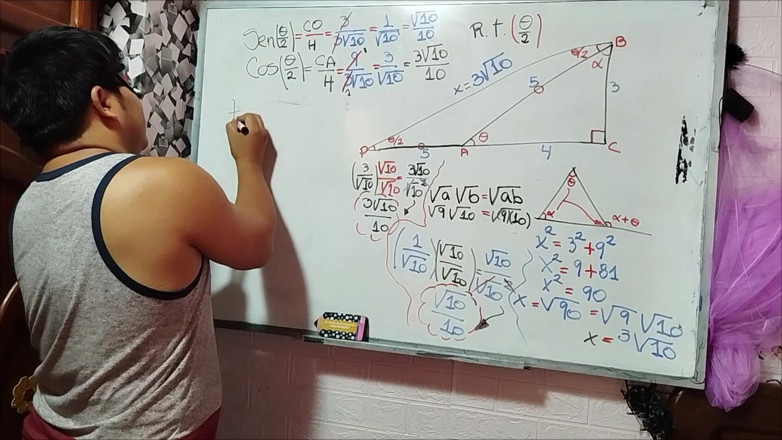 Sen(θ/2) = CO/H = 3/3√10 = 1/√10 = √10/10
R.T. (θ/2)
Cos(θ/2) = CA/H = 9/3√10 = 3/√10 = 3√10/10
B
θ/2
α
x = 3√10
5
3
P
θ/2
5
A
θ
4
C
(3/√10)(√10/√10) = 3√10/√10²
3√10/10
√a √b = √ab
√9 √10 = √9(10)
θ
α
α+θ
(1/√10)(√10/√10) = √10/√10²
√10/10
x² = 3² + 9²
x² = 9 + 81
x² = 90
x = √90 = √9 √10
x = 3√10